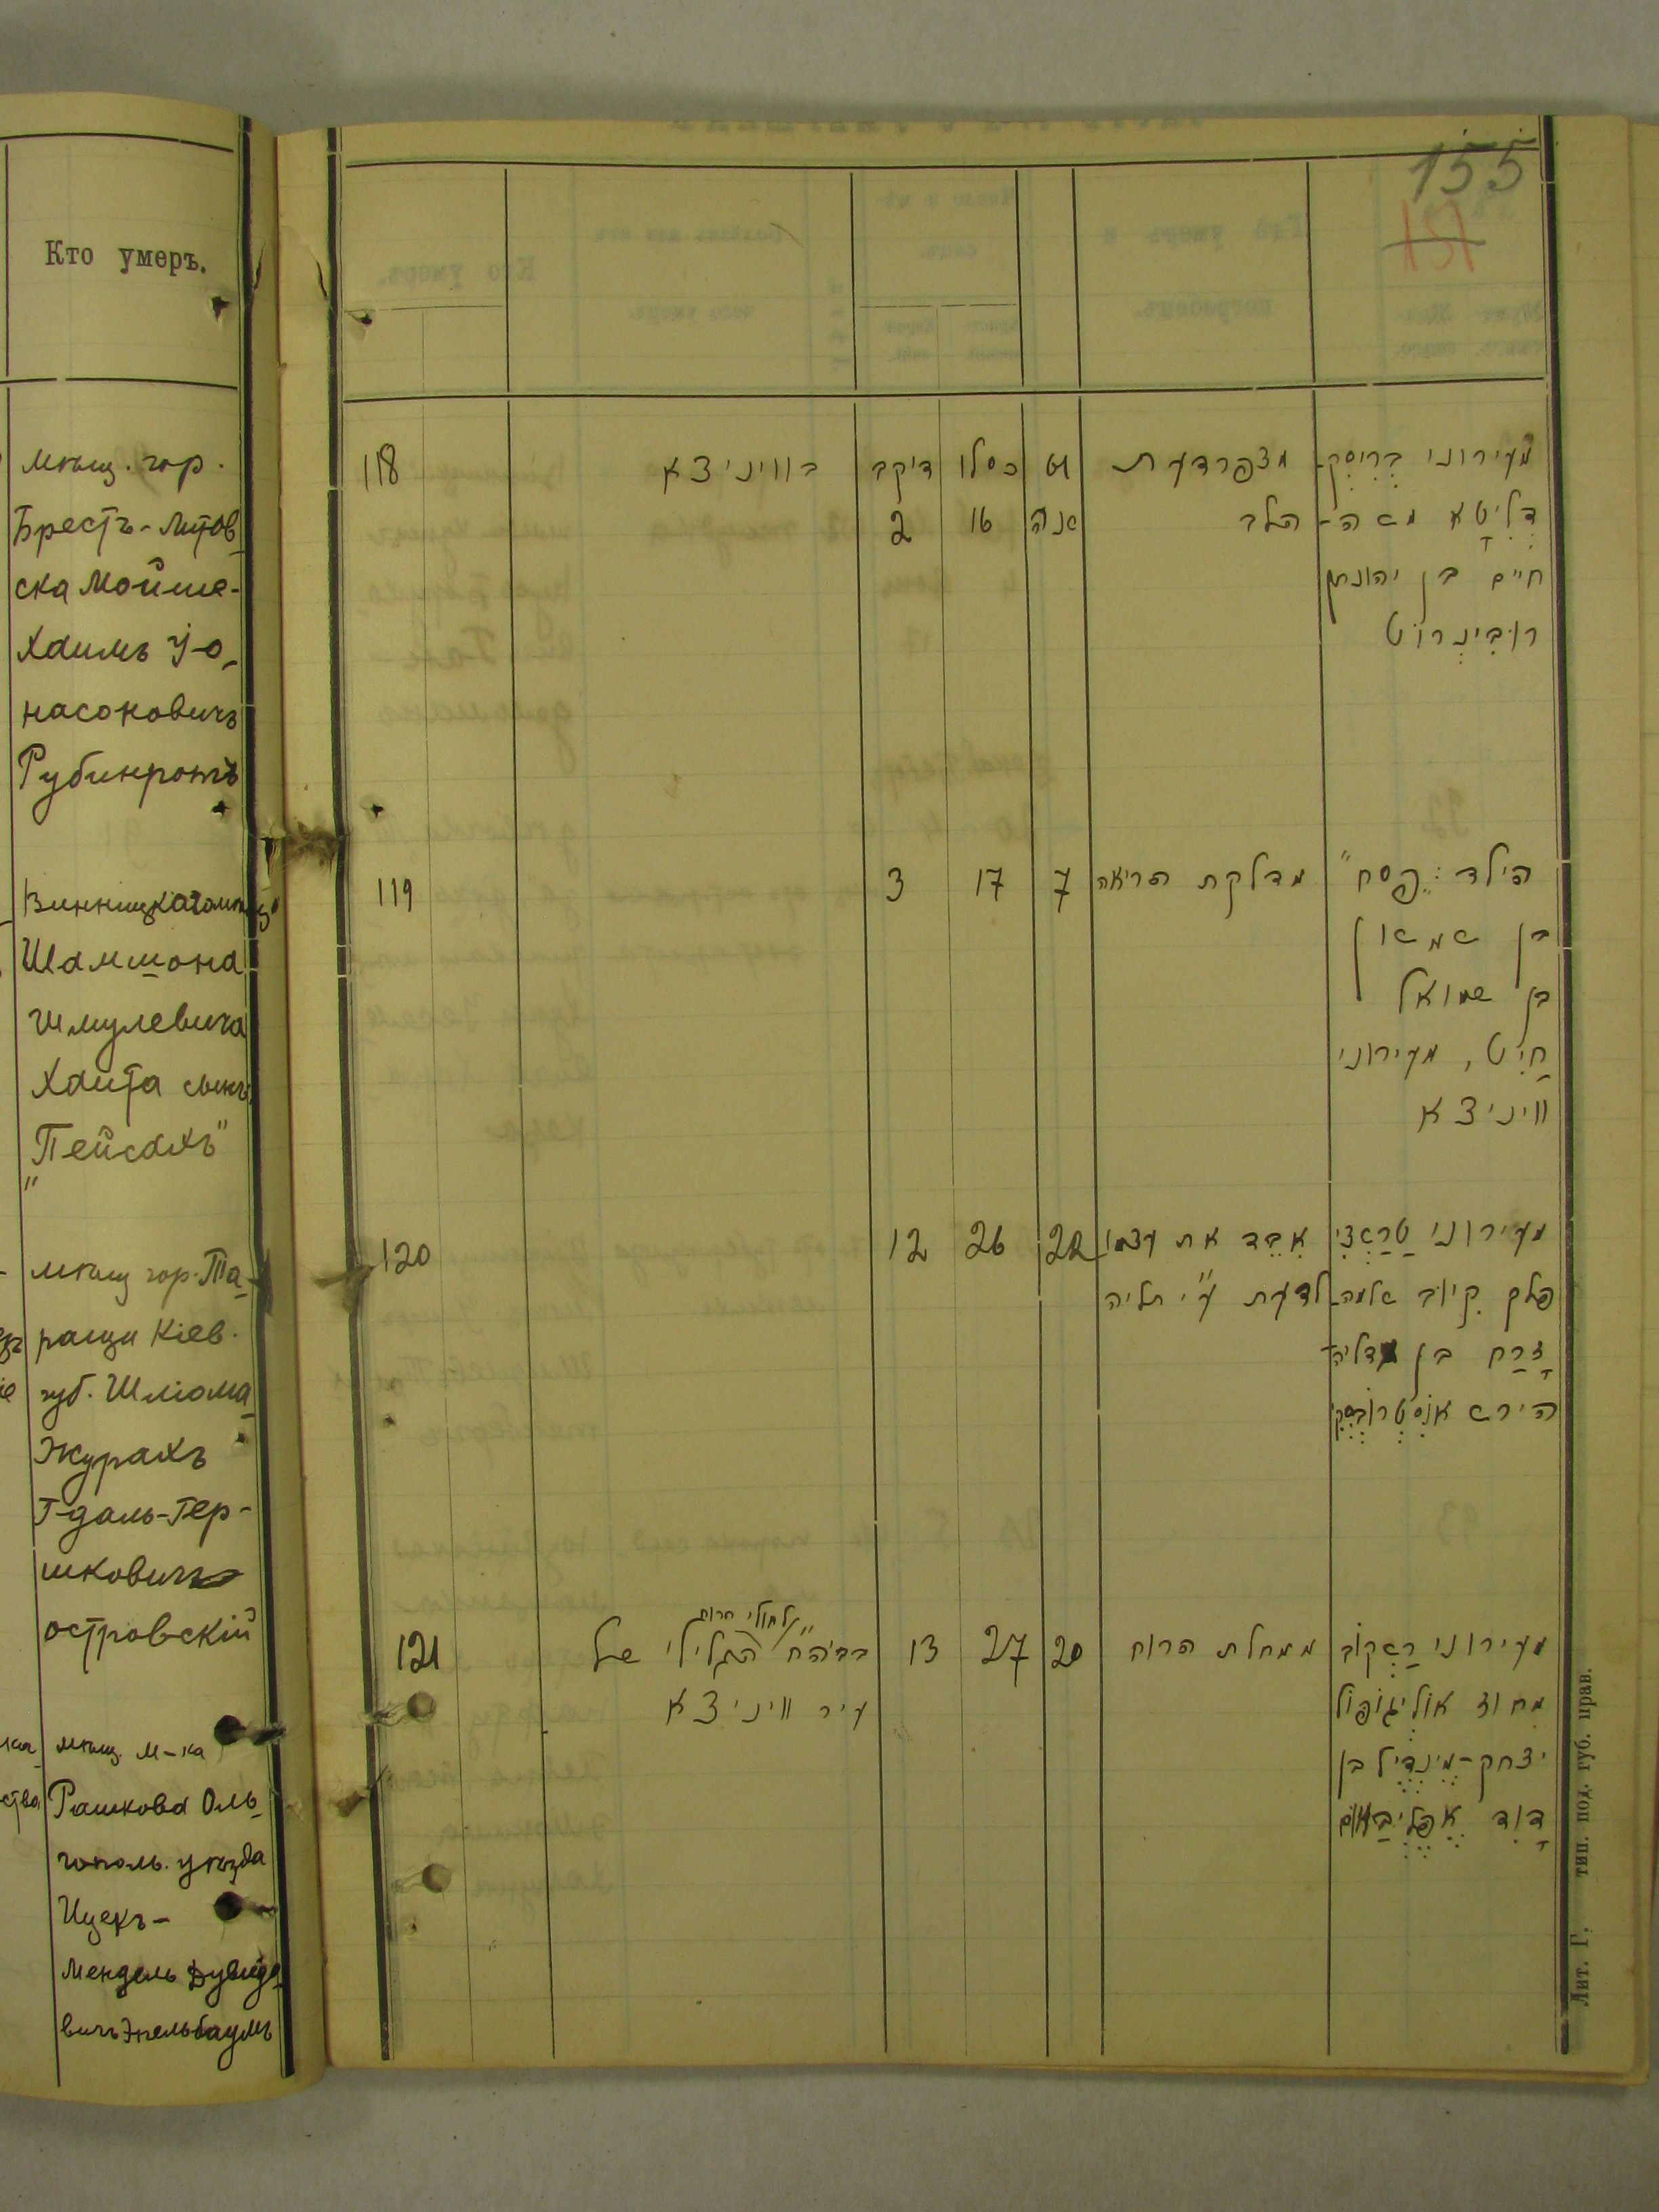 Кто умеръ.
мѣщ. гор.
Брестъ-Литов_
ска Мойше-
Хаимъ Іо_
насоновичъ
Рубинротъ
Шамшона
Шмулевича
Хаита сынъ
"Пейсахъ"
мѣщ гор. Та_
ращи Кіев.
губ. Шліома_
Г-даль-Гер-
шковичъ
островскій
мѣщ. м-ка
Рашкова Оль_
гополь. уѣзда
Ицекъ-
Мендель Дувидо_
вичъ Эпельбаумъ
155
151
118
בוויניצא
דיקב
כסלו
שנה
2
16
מצפרדעת
הלב
מעירוני בריסק-
דליטא משה-
חיים בן יהונתן
רובינרוט
119
3
17
7
מדלקת הריאה
הילד: "פסח"
בן שמשון
בן שמואל
חיט, מעירוני
וויניצא
120
12
26
22
אבד את עצמו
לדעת ע"י תליה
מעירוני טראצי
פלך קיוב שלמה-
זרח בן גדליה-
הירש אוסטרובסקי
121
לחולי הרוח
בביה"ח הגלילי של
עיר וויניצא
13
27
20
ממחלת הרוח
מעירוני רשקוב
מחוז אוליגופול
יצחק-מינדיל בן
דוד אפליבאום
Лит. Г. тип. под. губ. прав.